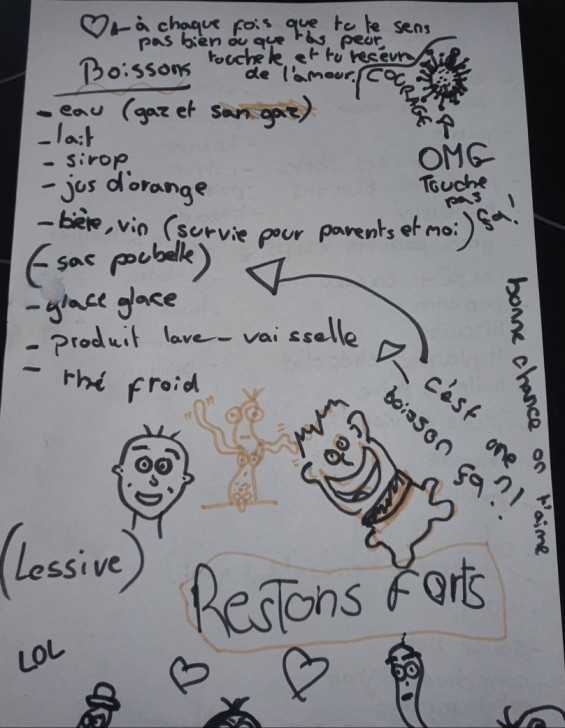 à chaque fois que tu te sens
pas bien ou que t'as peur,
touche le et tu recevra
de l'amour.
COURAGE
Boissons
- eau (gaz et san gaz)
- lait
- sirop
- jus d'orange
- bière, vin (survie pour parents et moi)
(- sac poubelle)
- glace glace
- produit lave-vaisselle
- thé froid
OMG
Touche
pas
ça!
c'est une
boisson ça?!
bonne chance on t'aime
(Lessive)
Restons forts
LOL